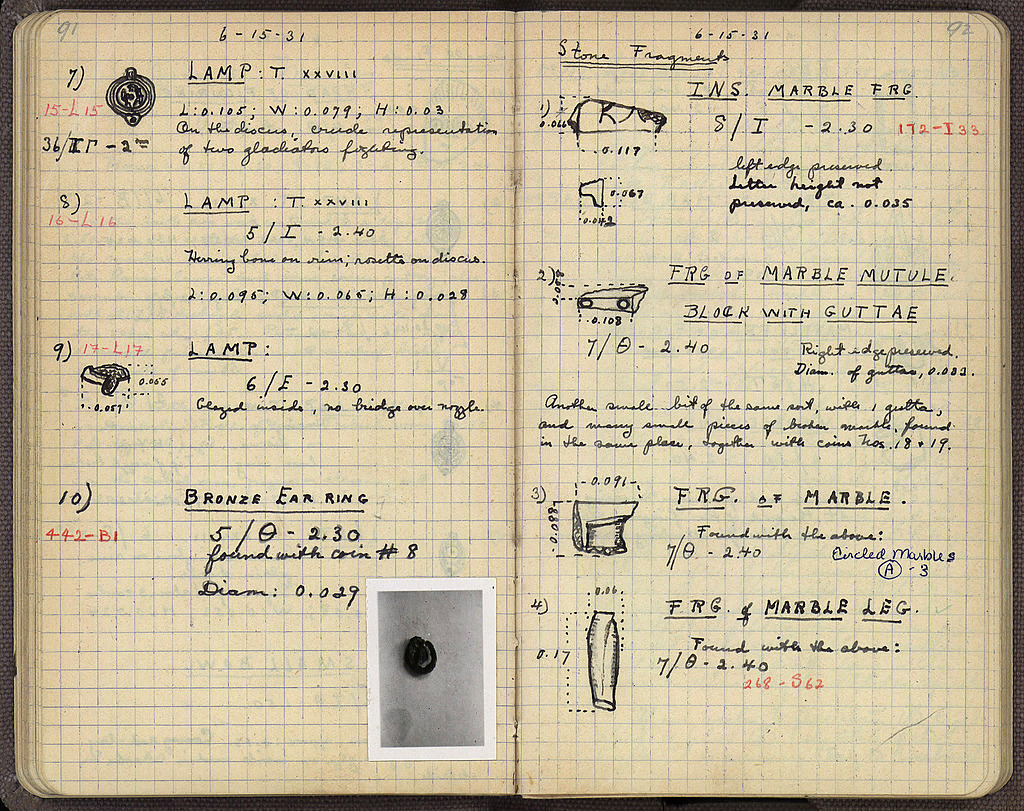 91
6-15-31
7)
LAMP: T. XXVIII
15-L15
L: 0.105; W: 0.079; H: 0.03
36/ΙΓ - 2
On the discus, crude representation
of two gladiators fighting.
8)
LAMP : T. XXVIII
16-L16
5/I - 2.40
Herring bone on rim; rosette on discus.
L: 0.095; W: 0.065; H: 0.028
9) 17-L17
LAMP:
0.055
0.057
6/E - 2.30
Glazed inside, no bridge over nozzle.
10)
BRONZE EAR RING
442-B1
5/Θ - 2.30
found with coin # 8
Diam: 0.029
92
6-15-31
Stone Fragments
1)
INS. MARBLE FRG.
0.066
K
0.117
8/I - 2.30 172-I33
left edge preserved
Letter height not
preserved, ca. 0.035
0.067
0.042
2)
FRG OF MARBLE MUTULE
BLOCK WITH GUTTAE
0.108
7/Θ - 2.40
Right edge preserved.
Diam. of guttae, 0.033.
Another small bit of the same sort, with 1 gutta,
and many small pieces of broken marble, found
in the same place, together with coins Nos. 18 + 19.
3)
0.091
0.088
FRG. OF MARBLE.
Found with the above:
7/Θ - 2.40
Circled Marbles
A - 3
4)
0.06
0.17
FRG. of MARBLE LEG.
Found with the above:
7/Θ - 2.40
268-S62